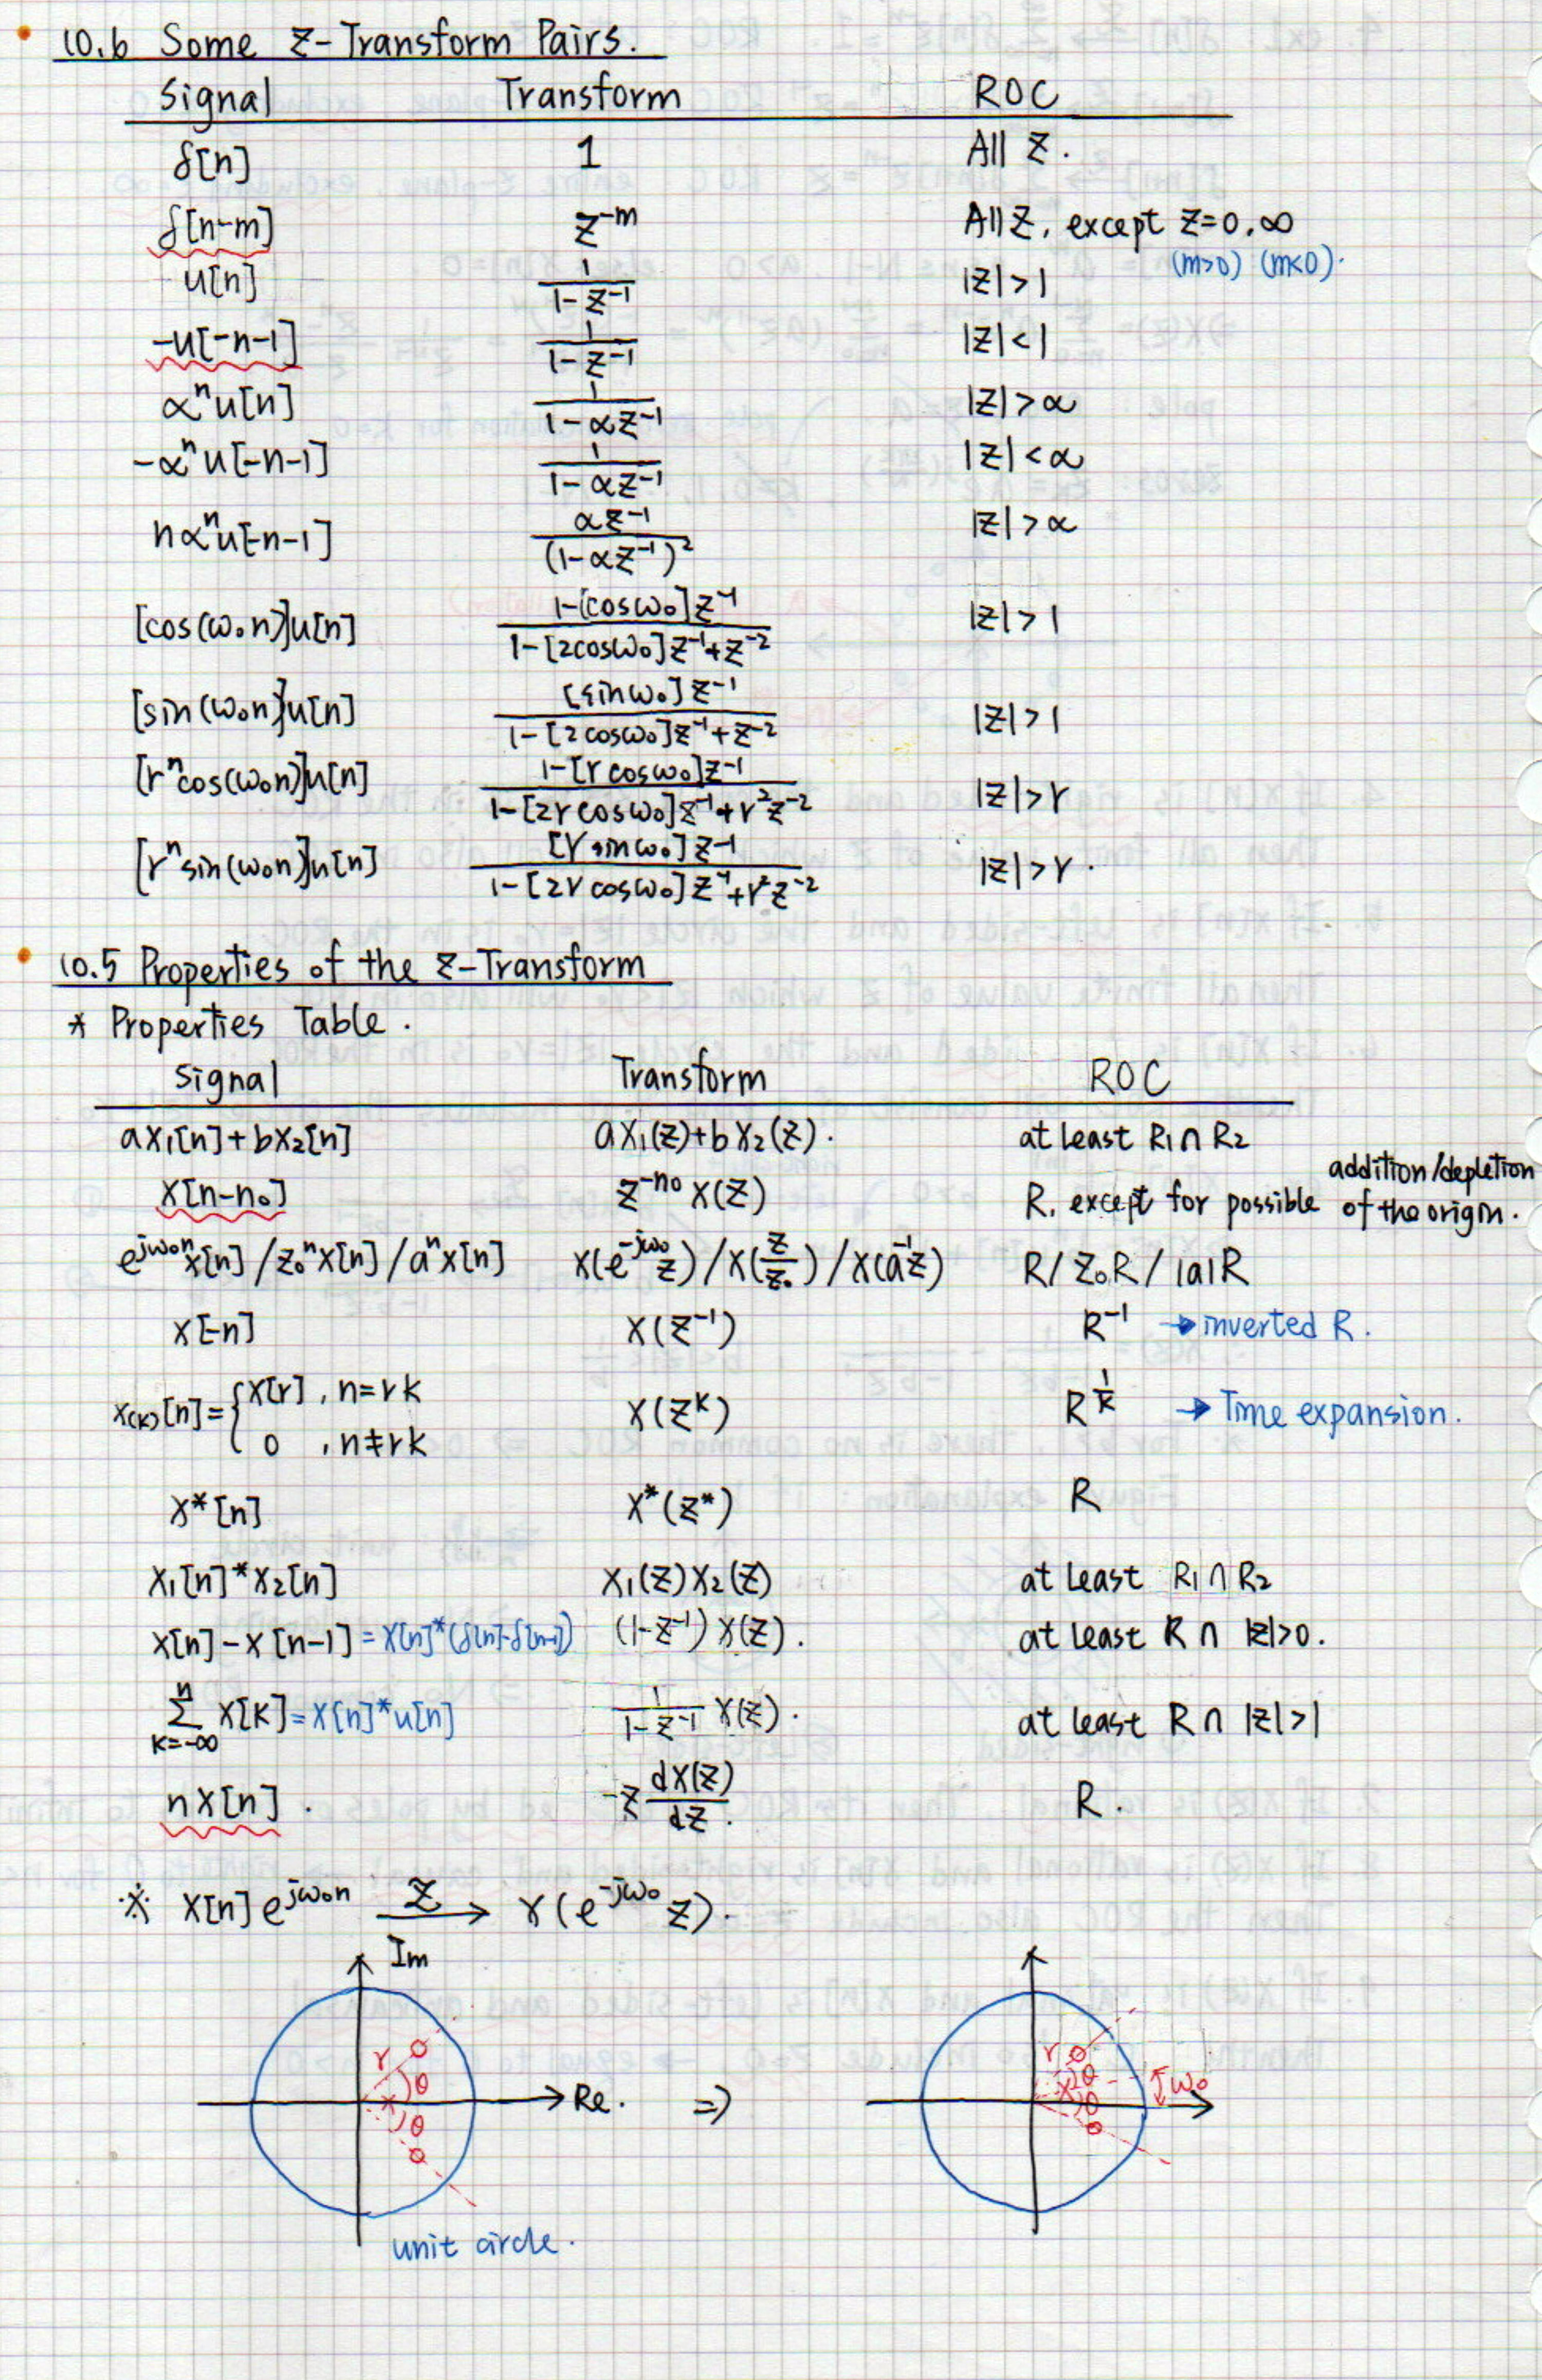 10.6 Some Z-Transform Pairs.
Signal Transform ROC
δ[n] 1 All Z.
δ[n-m] Z^-m All Z, except Z=0,∞
(m>0) (m<0).
u[n] 1/(1-Z^-1) |Z|>1
-u[-n-1] 1/(1-Z^-1) |Z|<1
α^n u[n] 1/(1-αZ^-1) |Z|>α
-α^n u[-n-1] 1/(1-αZ^-1) |Z|<α
nα^n u[-n-1] αZ^-1/(1-αZ^-1)^2 |Z|>α
[cos(ω₀n)]u[n] 1-[cosω₀]Z^-1/(1-[2cosω₀]Z^-1+Z^-2) |Z|>1
[sin(ω₀n)]u[n] [sinω₀]Z^-1/(1-[2cosω₀]Z^-1+Z^-2) |Z|>1
[r^n cos(ω₀n)]u[n] 1-[rcosω₀]Z^-1/(1-[2rcosω₀]Z^-1+r^2Z^-2) |Z|>r
[r^n sin(ω₀n)]u[n] [rsinω₀]Z^-1/(1-[2rcosω₀]Z^-1+r^2Z^-2) |Z|>r.
10.5 Properties of the Z-Transform
* Properties Table.
Signal Transform ROC
ax₁[n]+bx₂[n] aX₁(Z)+bX₂(Z). at least R₁∩R₂
x[n-n₀] Z^-n₀ X(Z) R, except for possible addition/depletion of the origin.
e^jω₀n x[n]/z₀^n x[n]/a^n x[n] X(e^-jω₀ Z)/X(Z/Z₀)/X(a^-1 Z) R/Z₀R/|a|R
x[-n] X(Z^-1) R^-1 → inverted R.
x(k)[n]={x[r], n=rk X(Z^k) R^1/k → Time expansion.
0, n≠rk
x*[n] X*(Z*) R
x₁[n]*x₂[n] X₁(Z)X₂(Z) at least R₁∩R₂
x[n]-x[n-1]=x[n]*(δ[n]-δ[n-1]) (1-Z^-1)X(Z). at least R∩|Z|>0.
∑ₖ₌₋∞ⁿ x[k]=x[n]*u[n] 1/(1-Z^-1) X(Z). at least R∩|Z|>1
nx[n]. -Z dX(Z)/dZ. R.
※ x[n]e^jω₀n Z→ X(e^-jω₀ Z).
Im
r θ θ
Re. ⇒
r θ θ ω₀
unit circle.